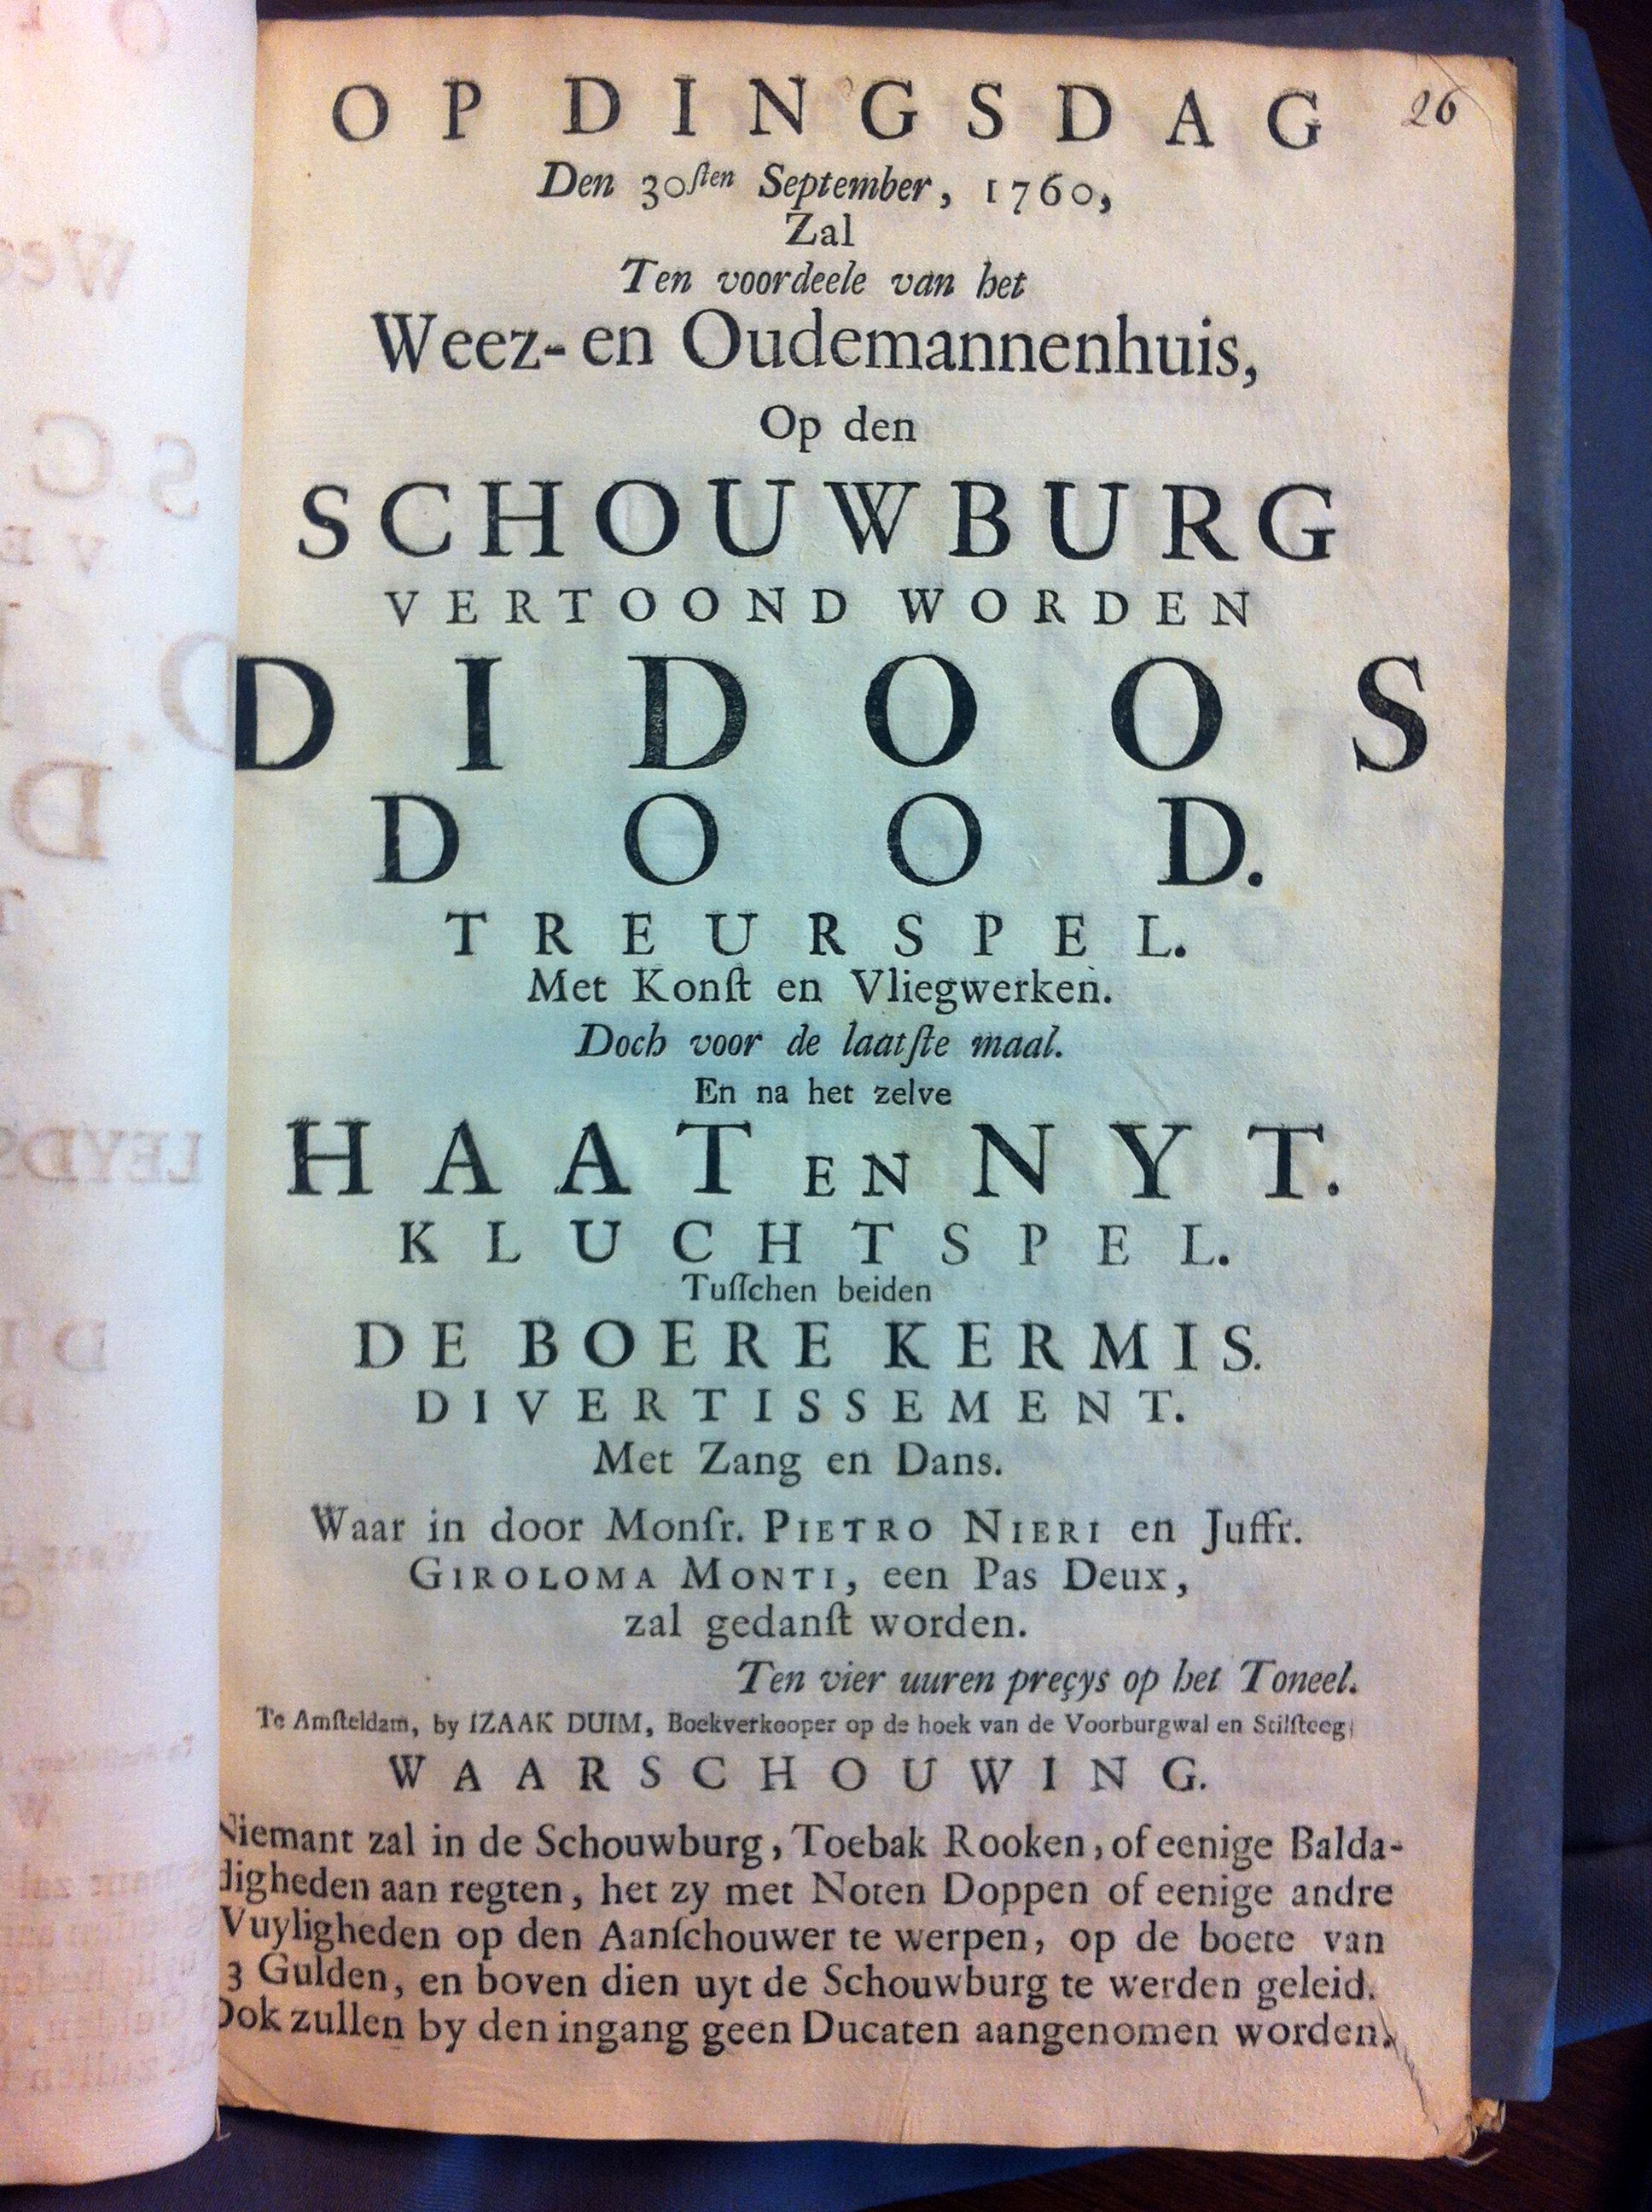 OP DINGSDAG
26
Den 30ſten September, 1760,
Zal
Ten voordeele van het
Weez- en Oudemannenhuis,
Op den
SCHOUWBURG
VERTOOND WORDEN
DIDOOS
DOOD.
TREURSPEL.
Met Konſt en Vliegwerken.
Doch voor de laatſte maal.
En na het zelve
HAAT EN NYT.
KLUCHTSPEL.
Tuſſchen beiden
DE BOERE KERMIS.
DIVERTISSEMENT.
Met Zang en Dans.
Waar in door Monſr. PIETRO NIERI en Juffr.
GIROLOMA MONTI, een Pas Deux,
zal gedanſt worden.
Ten vier uuren preçys op het Toneel.
Te Amſteldam, by IZAAK DUIM, Boekverkooper op de hoek van de Voorburgwal en Stilſteeg
WAARSCHOUWING.
Niemant zal in de Schouwburg, Toebak Rooken, of eenige Balda-
digheden aan regten, het zy met Noten Doppen of eenige andre
Vuyligheden op den Aanſchouwer te werpen, op de boete van
3 Gulden, en boven dien uyt de Schouwburg te werden geleid.
Ook zullen by den ingang geen Ducaten aangenomen worden.